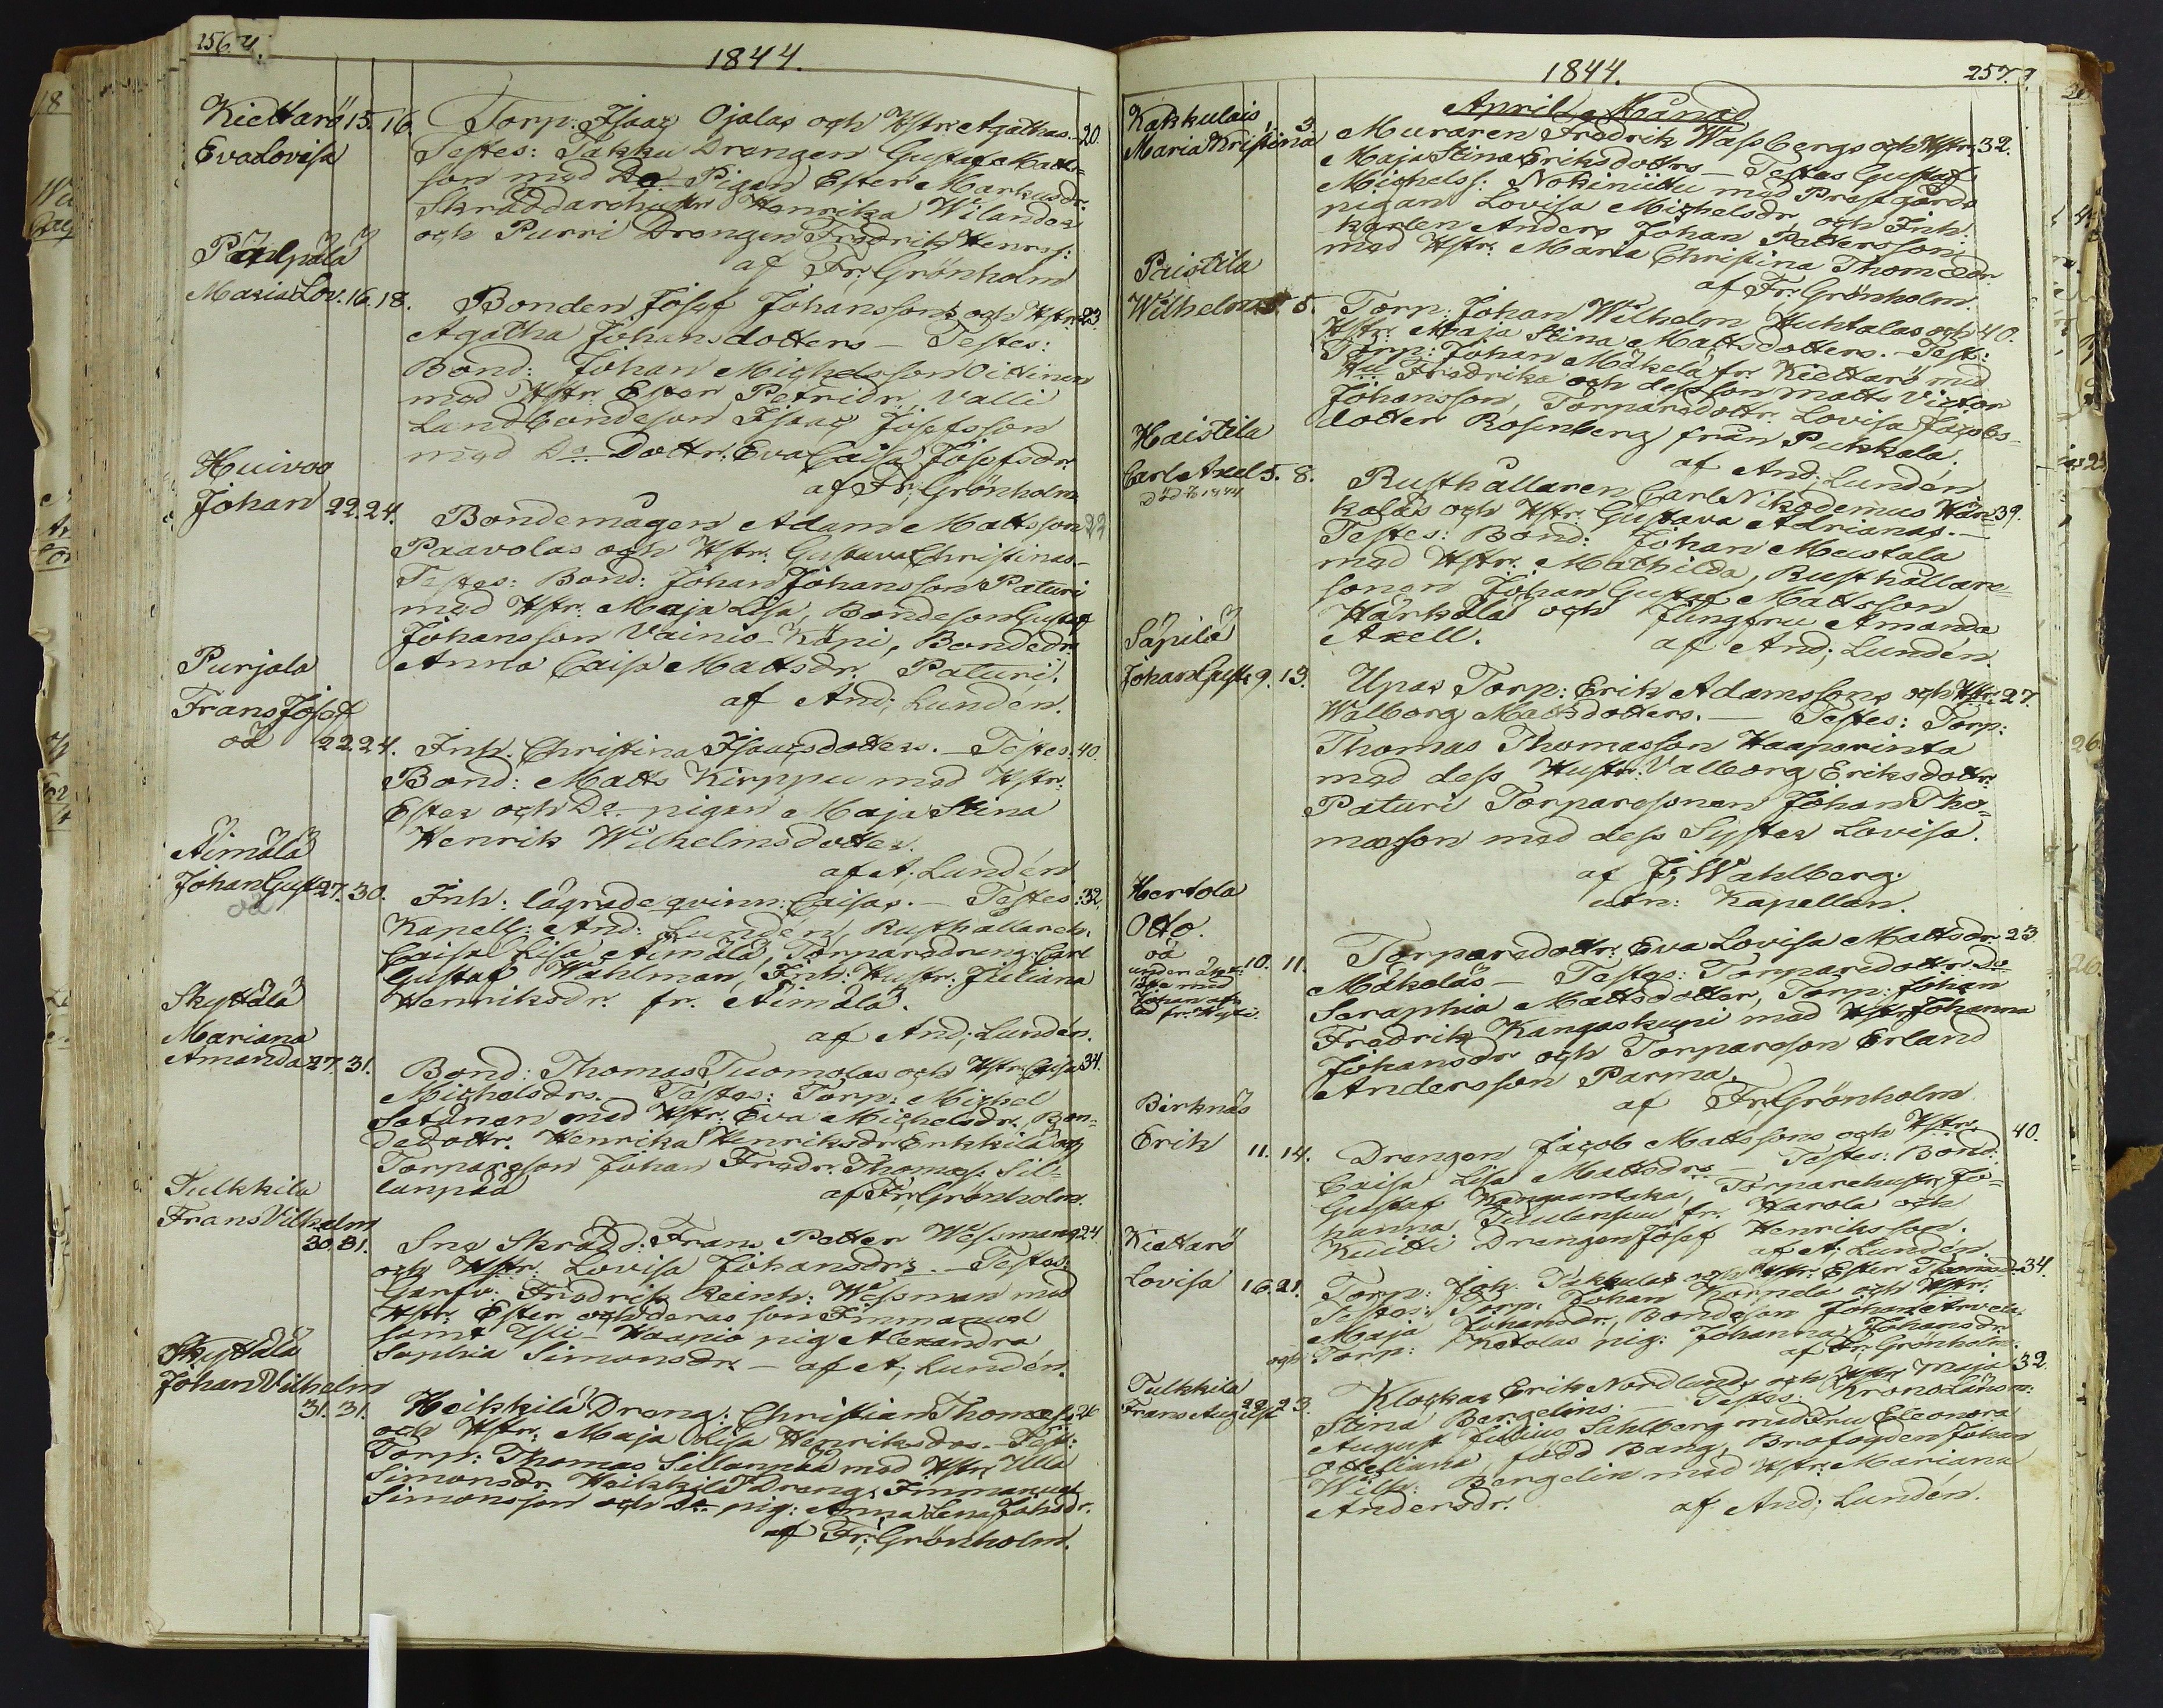 256.
1844.
Kiettarö 15. 16. Torp: Isaac Ojalas och Hstr: Agathas. 20.
Eva Lovisa Testes: Takku Drangen Gustaf Matts-
son med Do Pigan Ester Markusdr.
Skräddarehustr Henrika Wilander
och Purri Drangen Fredrik Henrss:
af Fr: Grönholm
Pälpälä
Maria Lov. 16. 18. Bonden Josef Johanssons och Hstr: 23.
Agatha Johansdotters — Testes:
Bond: Johan Michelsson Oittinen
med Hstr. Ester Petridr., Valli
Landbondeson Isaac Josefsson
med Do Dottr: Eva Caisa Josefsdr.
af Fr: Grönholm
Huivoo
Johan 22. 24. Bondemågen Adam Mattsson 22
Paavolas och Hstr. Gustava Christinas.-
Testes: Bond: Johan Johansson Paturi
med Hstr. Maja Lisa, Bondeson Gustaf
Johansson Vainio-Käpi, Bondedr.
Anna Caisa Mattsdr. Paturi.
af And; Lundén.
Purjala
Frans Josef
oä 22. 24. Inh. Christina Isaacsdotters. — Testes: 40.
Bond: Matts Kirppu med Hstr:
Ester och Do pigan Maja Stina
Henrik Wilhelmsdotter.
af A; Lundén
Äimälä
Johan Gust. 27. 30. Inh: lägrade qvinn: Caisas. — Testes: 32.
oä
Kapell: And: Lundén, Rusthållareh.
Caisa Lisa Äimälä, Torparedreng: Carl
Gustaf Wahlman, Inh: Hustr. Juliana
Henriksdr. fr. Äimälä.
af And; Lundén.
Skyttälä
Mariana
Amanda 27. 31. Bond: Thomas Tuomolas och Hstr: Caisa 34.
Michelsdrs. Testes: Torp: Michel
Satanen med Hstr: Eva Michelsdr. Bon-
dedottr. Henrika Henriksdr Erkkilä och
Torpareson Johan Fredr. Thomass: Sil-
lanpää
af Fr: Grönholm.
Tulkkila
Frans Vilhelm
30. 31. Sne Skrädd: Frans Petter Wessmans 24
och Hstr: Lovisa Johansdrs. — Testes:
Garfv: Fredrik Reinh: Wessman med
Hstr: Ester och deras son Emmanuel
samt Yli-Haapio pig Alexandra
Sophia Simonsdr. — af A; Lundén.
Skyttälä
Johan Vilhelm
31. 31. Heikkilä Dreng: Christian Thomess: 26
och Hstr: Maja Lisa Henriksdrs. — Test:
Torp: Thomas Sillanpää med Hstr: Ulla
Simonsdr. Heikkilä Dreng: Emmanuel
Simonsson och Do pig: Anna Lena Johsdr.
af Fr: Grönholm.
1844. 257.
April Månad
Kakkulais 1. 3. Muraren Fredrik Wassbergs och Hstrs 32.
Maria Kristina
Maja Stina Eriksdotters — Testes Gustaf
Michelss: Nokiniittu med Prestgårds
pigan Lovisa Michelsdr. och Inh.
karlen Anders Johan Pettersson
med Hstr: Maria Christina Thomedr.
af Fr: Grönholm.
Paistila
Wilhelm 5. 5. Torp: Johan Wilhelm Huhtalas och 40.
Hstr: Maja Stina Mattsdotters. — Test:
Torp: Johan Mäkelä fr Kiettarö med
Hu Fredrika och dess son Matts Victor
Johansson, Torparedottr. Lovisa Jacobs-
dotter Rosenberg från Pukkala.
af And; Lundén
Haistila
Carl Axel 5. 8. Rusthållaren Carl Nikodemus Hän- 39.
död 1844
kaläs och Hstr: Gustava Adrianas. —
Testes: Bond: Johan Mustala
med Hstr. Mathilda, Rusthållare-
sonen Johan Gustaf Mattsson
Härkälä och Jungfru Amanda
Axell. af And; Lundén.
Säpilä
Johan Gust. 9. 13. Upas Torp: Erik Adamssons och Hstrs 27.
Walborg Mattsdotters. — Testes: Torp:
Thomas Thomasson Haaparinta
med dess Hustr. Valborg Eriksdottr.
Paturi Torparesonen Johan Tho-
masson med dess Syster Lovisa.
af J; Wahlberg.
Kapellan.
Hertola
Otto. 10. 11. Torparedottr: Eva Lovisa Mattsdr. 23
oä
Mäkeläs — Testes: Torparedottr. Do
Seraphia Mattsdotter, Torp: Johan
Fredrik Kangaskupi med Hstr: Johanna
Johansdr. och Torpareson Erland
Andersson Parma.
af Fr: Grönholm
Birknäs
Erik 11. 14. Drangen Jacob Mattssons och Hstrs 40.
Caisa Lisa Mattsdrs — Testes: Bond:
Gustaf Kangaantaka, Torparehustr. Jo-
hanna Tuulensuu fr. Harola och
Kuitti Drengen Josef Henriksson.
af A; Lundén.
Kiettarö
Lovisa 16. 21. Torp: Joh. Takkulas och Hstr: Ester Thomasd. 34.
Testes: Torp: Johan Korpela och Hstr:
Maja Johansdr., Bondeson Johan
och Torp: Ketolas pig: Johanna Johansdr.
af Fr: Grönholm.
Tulkkila
Frans August 22. 23. Klockar Erik Nordlunds och Hstr: Maja 32.
Stina Bergelins. — Testes: Kronolänsm:
August Julius Sahlberg med Fru Eleonora
Ottiliana, född Bang, Brofogden Johan
Wilh: Bergelin med Hstr: Mariana
Andersdr. af And; Lundén.